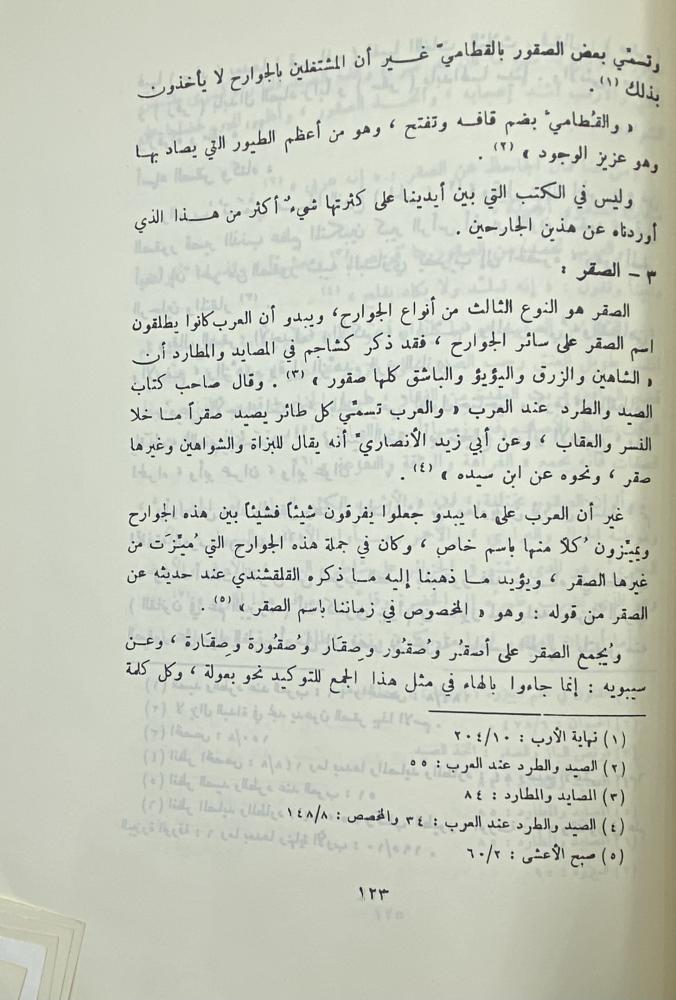 وتسمّي بعض الصقور بالقطاميّ غير أن المشتغلين بالجوارح لا يأخذون
بذلك (١) .
« والقُطاميّ بضم قافه وتفتح ، وهو من أعظم الطيور التي يصاد بها
وهو عزيز الوجود » (٢) .
وليس في الكتب التي بين أيدينا على كثرتها شيءٌ أكثر من هذا الذي
أوردناه عن هذين الجارحين .
٣ - الصقر :
الصقر هو النوع الثالث من أنواع الجوارح، ويبدو أن العرب كانوا يطلقون
اسم الصقر على سائر الجوارح ، فقد ذكر كشاجم في المصايد والمطارد أن
« الشاهين والزرق واليؤيؤ والباشق كلها صقور » (٣) . وقال صاحب كتاب
الصيد والطرد عند العرب « والعرب تسمّي كل طائر يصيد صقراً ما خلا
النسر والعقاب ، وعن أبي زيد الأنصاريّ أنه يقال للبزاة والشواهين وغيرها
صقر ، ونحوه عن ابن سيده » (٤) .
غير أن العرب على ما يبدو جعلوا يفرقون شيئاً فشيئاً بين هذه الجوارح
ويميّزون كُلاّ منها باسم خاص ، وكان في جملة هذه الجوارح التي مُيّزَت من
غيرها الصقر ، ويؤيد ما ذهبنا إليه ما ذكره القلقشندي عند حديثه عن
الصقر من قوله : وهو « المخصوص في زماننا باسم الصقر » (٥) .
ويُجمع الصقر على أصقُر وصُقُور وصِقَار وصُقُورة وصِقَارة ، وعن
سيبويه : إنما جاءوا بالهاء في مثل هذا الجمع للتوكيد نحو بعولة ، وكل كلمة
(١) نهاية الأرب : ٢٠٤/١٠
(٢) الصيد والطرد عند العرب : ٥٥
(٣) المصايد والمطارد : ٨٤
(٤) الصيد والطرد عند العرب : ٣٤ والمخصص : ١٤٨/٨
(٥) صبح الأعشى : ٦٠/٢
١٢٣